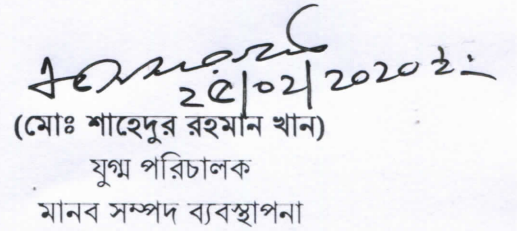 ২৫/০২/২০২০ ইং
(মোঃ শাহেদুর রহমান খান)
যুগ্ম পরিচালক
মানব সম্পদ ব্যবস্থাপনা